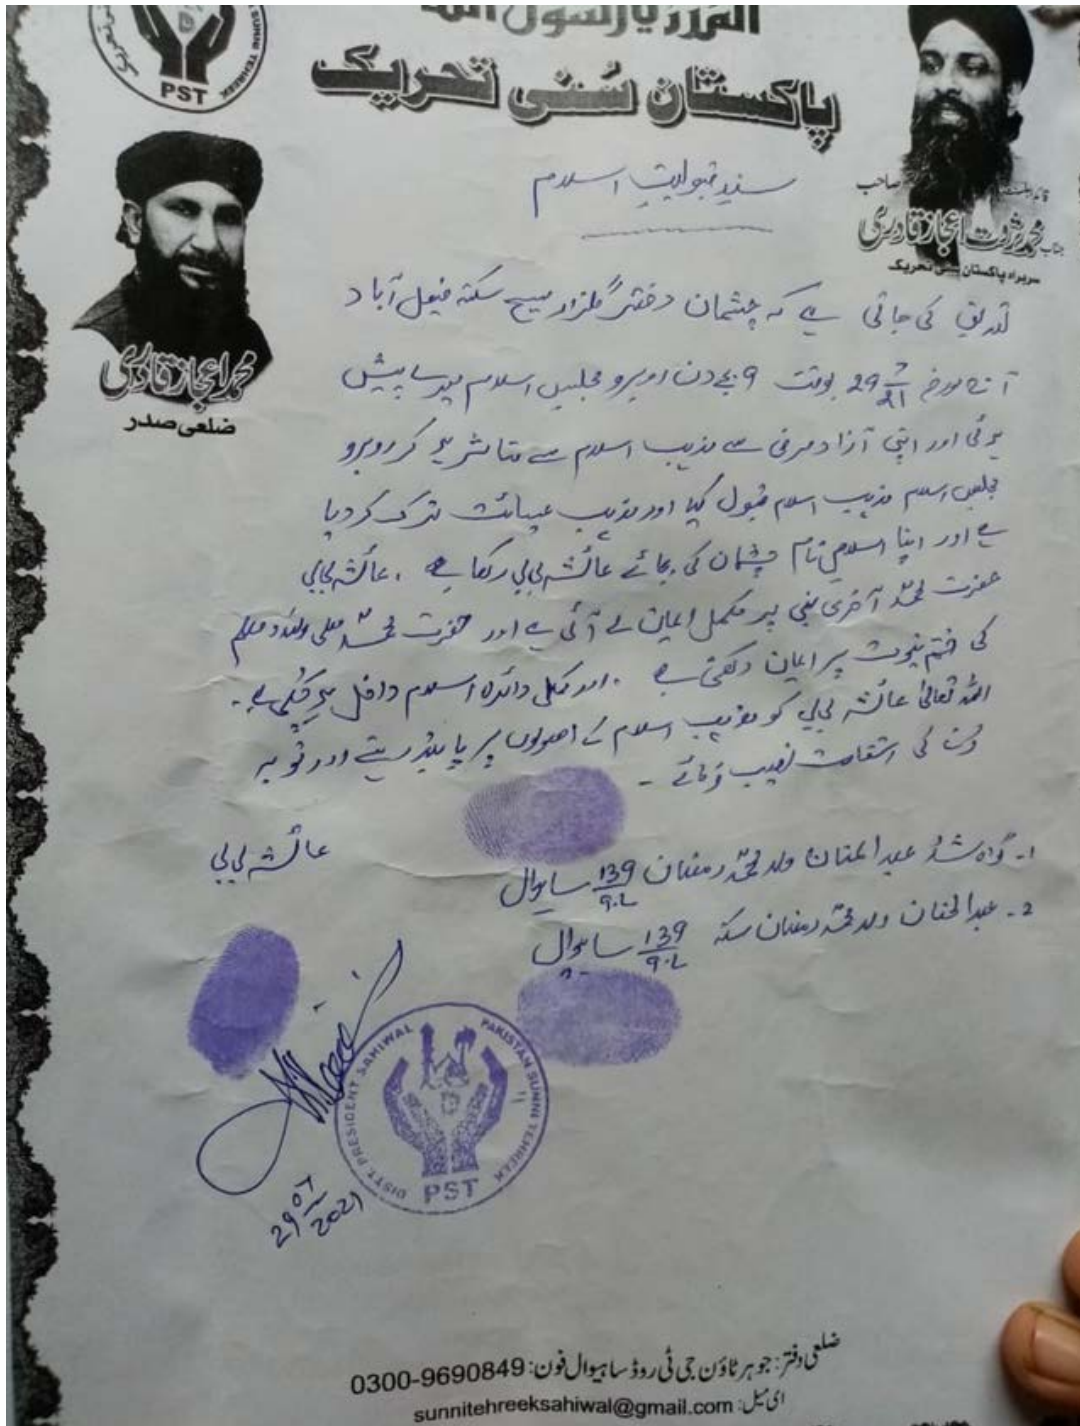 المدد یا رسول اللہ
پاکستان سُنی تحریک
PST
SUNNI TEHREEK
صاحب
جناب محمد ثروت اعجاز قادری
سربراہ پاکستان سنی تحریک
محمد اعجاز قادری
ضلعی صدر
سندِ قبولیتِ اسلام
تصدیق کی جاتی ہے کہ چشمان دختر گلزار مسیح سکنہ فیصل آباد
آج مورخہ 29 7/21 بوقت 9 بجے دن روبرو مجلس اسلام میں پیش
ہوئی اور اپنی آزاد مرضی سے مذہب اسلام سے متاثر ہو کر روبرو
مجلس اسلام مذہب اسلام قبول کیا اور مذہب عیسائت ترک کر دیا
ہے اور اپنا اسلامی نام چشمان کی بجائے عائشہ بی بی رکھا ہے ۔ عائشہ بی بی
حضرت محمدؐ آخری نبی پر مکمل ایمان لے آئی ہے اور حضرت محمدؐ صلی وسلم
کی ختم نبوت پر ایمان رکھتی ہے ۔ اور مکمل دائرہ اسلام داخل ہو چکی ہے ۔
اللہ تعالیٰ عائشہ بی بی کو مذہب اسلام کے اصولوں پر پابند رہنے اور توبہ
کی استقامت نصیب فرمائے ۔
عائشہ بی بی
1۔ گواہ شد عبدالمنان ولد محمد رمضان 139/9.L ساہیوال
2۔ عبدالحنان ولد محمد رمضان سکنہ 139/9.L ساہیوال
DISTT. PRESIDENT SAHIWAL
PAKISTAN SUNNI TEHREEK
PST
29 07/2021
ضلعی دفتر: جوہر ٹاؤن جی ٹی روڈ ساہیوال فون: 0300-9690849
ای میل: sunnitehreeksahiwal@gmail.com